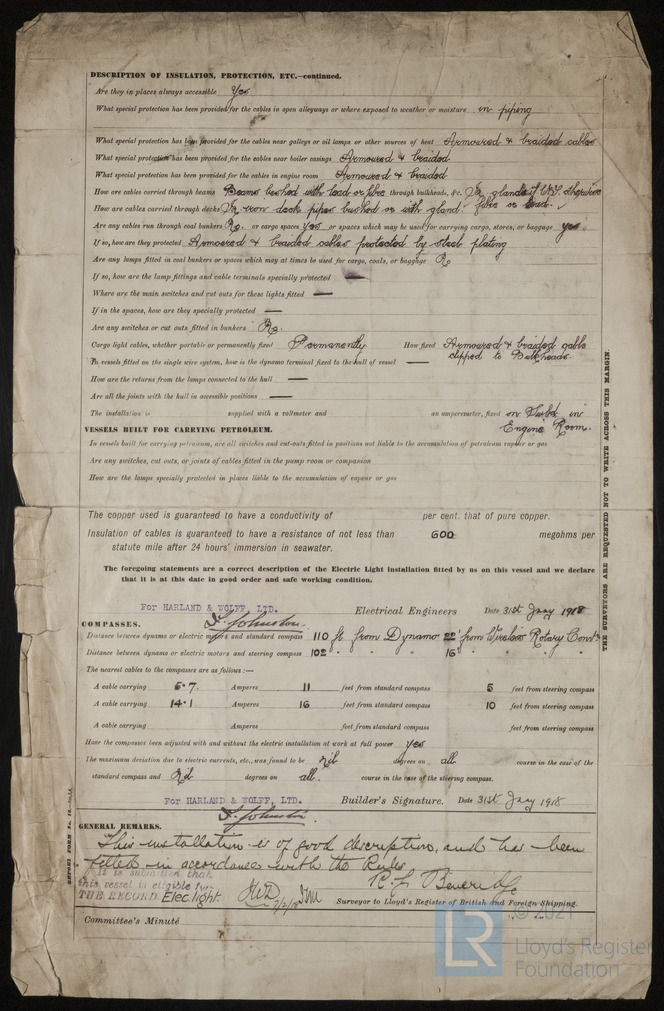 DESCRIPTION OF INSULATION, PROTECTION, ETC.—continued.
Are they in places always accessible Yes
What special protection has been provided for the cables in open alleyways or where exposed to weather or moisture in piping
What special protection has been provided for the cables near galleys or oil lamps or other sources of heat Armoured & braided cables
What special protection has been provided for the cables near boiler casings Armoured & braided
What special protection has been provided for the cables in engine room Armoured & braided
How are cables carried through beams Beams bushed with lead or fibre through bulkheads, &c. In glands if W.T. otherwise
How are cables carried through decks In iron deck pipes bushed or with gland fibre or lead.
Are any cables run through coal bunkers No. or cargo spaces yes or spaces which may be used for carrying cargo, stores, or baggage yes
If so, how are they protected Armoured & braided cables protected by steel plating
Are any lamps fitted in coal bunkers or spaces which may at times be used for cargo, coals, or baggage No
If so, how are the lamp fittings and cable terminals specially protected —
Where are the main switches and cut outs for these lights fitted —
If in the spaces, how are they specially protected —
Are any switches or cut outs fitted in bunkers No.
Cargo light cables, whether portable or permanently fixed Permanently How fixed Armoured & braided cable
clipped to Bulkheads.
In vessels fitted on the single wire system, how is the dynamo terminal fixed to the hull of vessel —
How are the returns from the lamps connected to the hull —
Are all the joints with the hull in accessible positions —
The installation is supplied with a voltmeter and an amperemeter, fixed on Swbd. in
Engine Room.
VESSELS BUILT FOR CARRYING PETROLEUM.
In vessels built for carrying petroleum, are all switches and cut-outs fitted in positions not liable to the accumulation of petroleum vapour or gas
Are any switches, cut outs, or joints of cables fitted in the pump room or companion
How are the lamps specially protected in places liable to the accumulation of vapour or gas
The copper used is guaranteed to have a conductivity of per cent. that of pure copper.
Insulation of cables is guaranteed to have a resistance of not less than 600 megohms per
statute mile after 24 hours' immersion in seawater.
The foregoing statements are a correct description of the Electric Light installation fitted by us on this vessel and we declare
that it is at this date in good order and safe working condition.
For HARLAND & WOLFF, LTD. Electrical Engineers Date 31st Jany 1918
Johnston.
COMPASSES.
Distance between dynamo or electric motors and standard compass 110 ft from Dynamo 22' from Wireless Rotary Conv.
Distance between dynamo or electric motors and steering compass 102 " " " 16 " " "
The nearest cables to the compasses are as follows:—
A cable carrying 5.7 Amperes 11 feet from standard compass 5 feet from steering compass
A cable carrying 14.1 Amperes 16 feet from standard compass 10 feet from steering compass
A cable carrying Amperes feet from standard compass feet from steering compass
Have the compasses been adjusted with and without the electric installation at work at full power yes
The maximum deviation due to electric currents, etc., was found to be nil degrees on all course in the case of the
standard compass and Nil degrees on all. course in the case of the steering compass.
For HARLAND & WOLFF, LTD. Builder's Signature. Date 31st Jany 1918
Johnston.
GENERAL REMARKS.
This installation is of good description, and has been
fitted in accordance with the Rules
It is submitted that
this vessel is eligible for
THE RECORD Elec. light. 7/2/18
R. F. Beveridge
Surveyor to Lloyd's Register of British and Foreign Shipping.
Committee's Minute
THE SURVEYORS ARE REQUESTED NOT TO WRITE ACROSS THIS MARGIN.
© 2021
LR
Lloyd's Register
Foundation